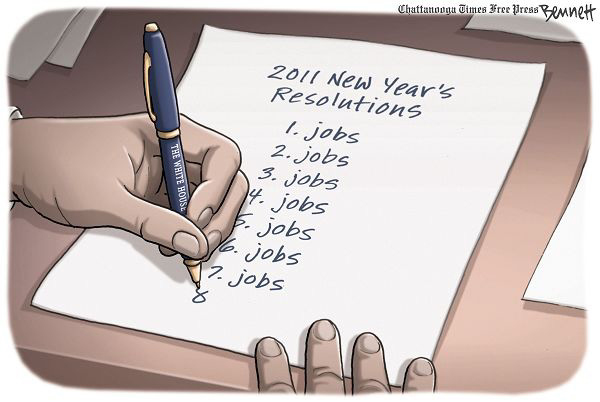 Chattanooga Times Free Press Bennett
2011 New Year's
Resolutions
1. jobs
2. jobs
3. jobs
4. jobs
5. jobs
6. jobs
7. jobs
8
THE WHITE HOUSE